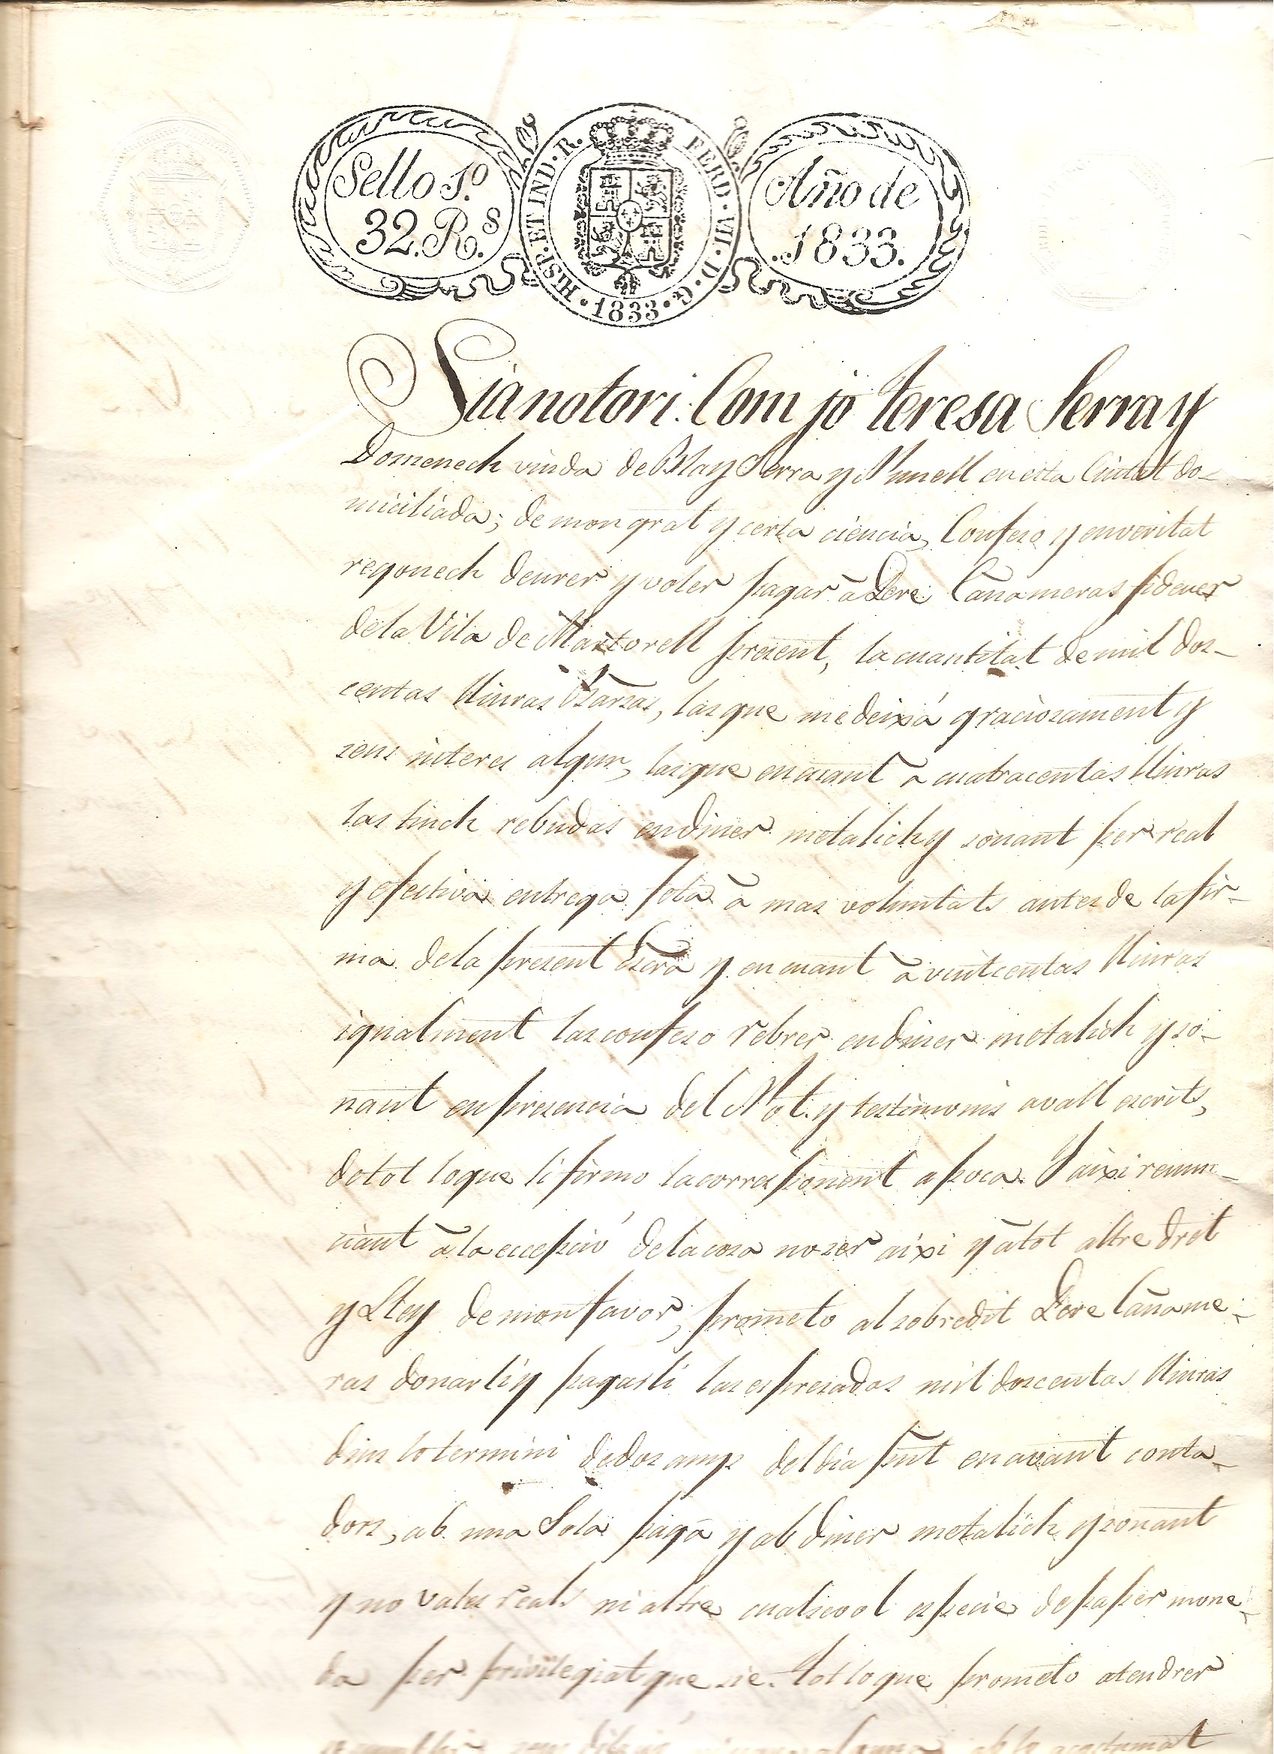 Sello 1.º
32. R.s
HISP. ET IND. R. FERD. VII. D. G. 1833
Año de
1833.
Sia notori: Com jo Teresa Serra y
Domenech viuda de Blay Serra y Nunell en esta Ciutat do-
miciliada; de mon grat y certa ciencia, Confeso y en veritat
regonech deurer y voler pagar â Pere Cañameras fideuer
de la Vila de Martorell present, la cuantitat de mil dos-
centas lliuras Barsas, las que me deixá graciosament y
sens interes algun, las que en cuant â cuatracentas lliuras
las tinch rebudas en diner metalich y sonant per real
y efectiva entrega feta â mas voluntats antes de la fir-
ma de la present Escra y en cuant â vuitcentas lliuras
igualment las confeso rebrer en diner metalich y so-
nant en presencia del Not. y testimonis avall escrits,
de tot lo que li firmo la corresponent apoca. Y aixi renun-
ciant â la eccepció de la cosa no ser aixi y â tot altre dret
y Lley de mon favor, prometo al sobredit Pere Cañame-
ras donarli y pagarli las espresadas mil doscentas lliuras
dins lo termini de dos anys del dia pnt en avant conta-
dors, ab una sola paga y ab diner metalich y sonant
y no vales reals ni altre cualsevol especie de paper mone-
da per privilegiat que sie. Tot lo que prometo atendrer